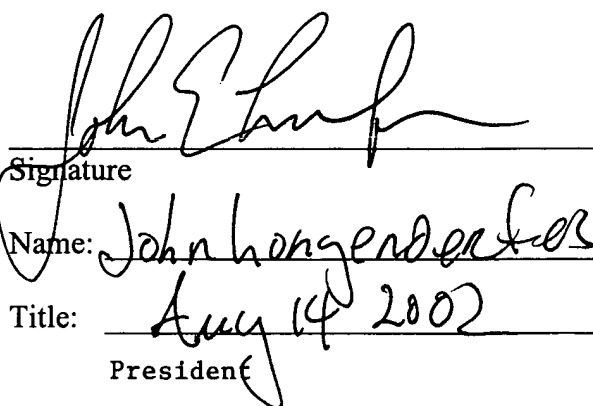 John E
Signature
Name: John Longenderfer
Title: Aug 14 2002
President